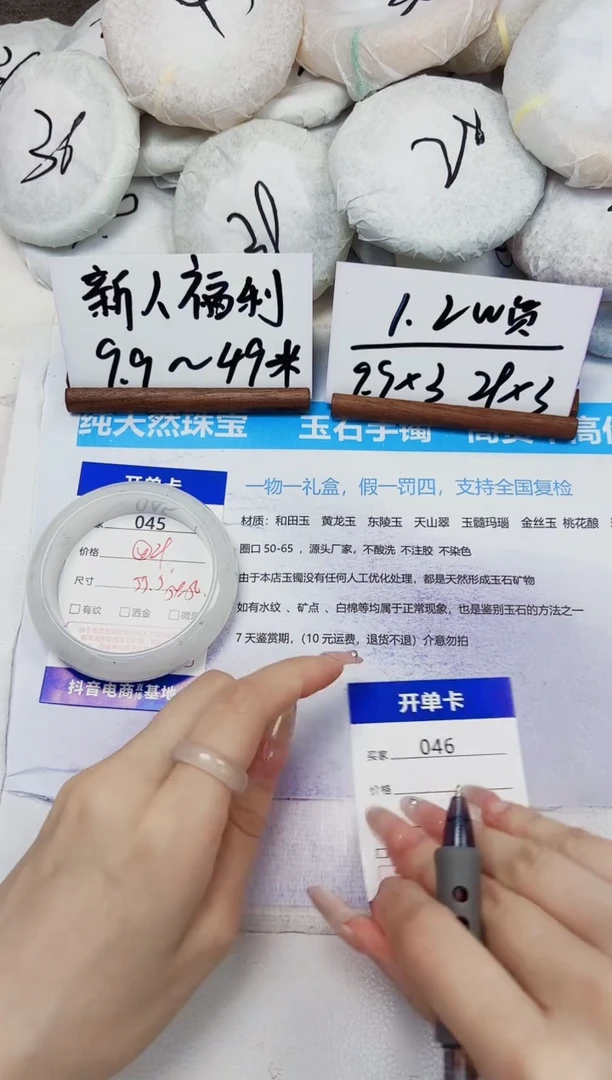 38
28
28
新人福利
9.9～49米
1.2W员
9.9×3 29×3
纯天然珠宝 玉石手镯
开单卡
一物一礼盒，假一罚四，支持全国复检
045
材质：和田玉 黄龙玉 东陵玉 天山翠 玉髓玛瑙 金丝玉 桃花酿
价格
圈口 50-65 ，源头厂家，不酸洗 不注胶 不染色
尺寸
由于本店玉镯没有任何人工优化处理，都是天然形成玉石矿物
有纹 洒金
如有水纹 、矿点 、白棉等均属于正常现象，也是鉴别玉石的方法之一
7 天鉴赏期，（10 元运费，退货不退）介意勿拍
抖音电商直播基地
开单卡
买家 046
价格